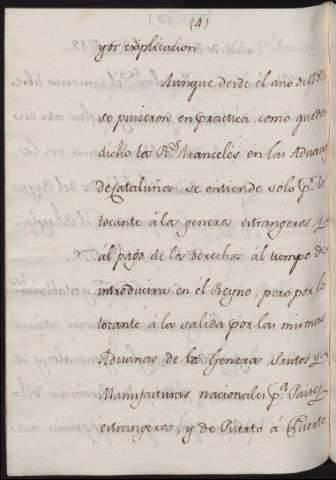 (4)
yor explicacion
Aunque desde el año de 178
se pusieron en practica como queda
dicho los Rs. Aranceles en las Aduanas
de Cataluña se entiende solo pr. lo
tocante á los generos estrangeros y
al pago de los derechos al tiempo de
introducirse en el Reyno; pero por lo
tocante a la salida por las mismas
Aduanas de los Generos Frutos y
Manufacturas nacionales pa. Paises
estrangeros, y de Puerto á Puerto